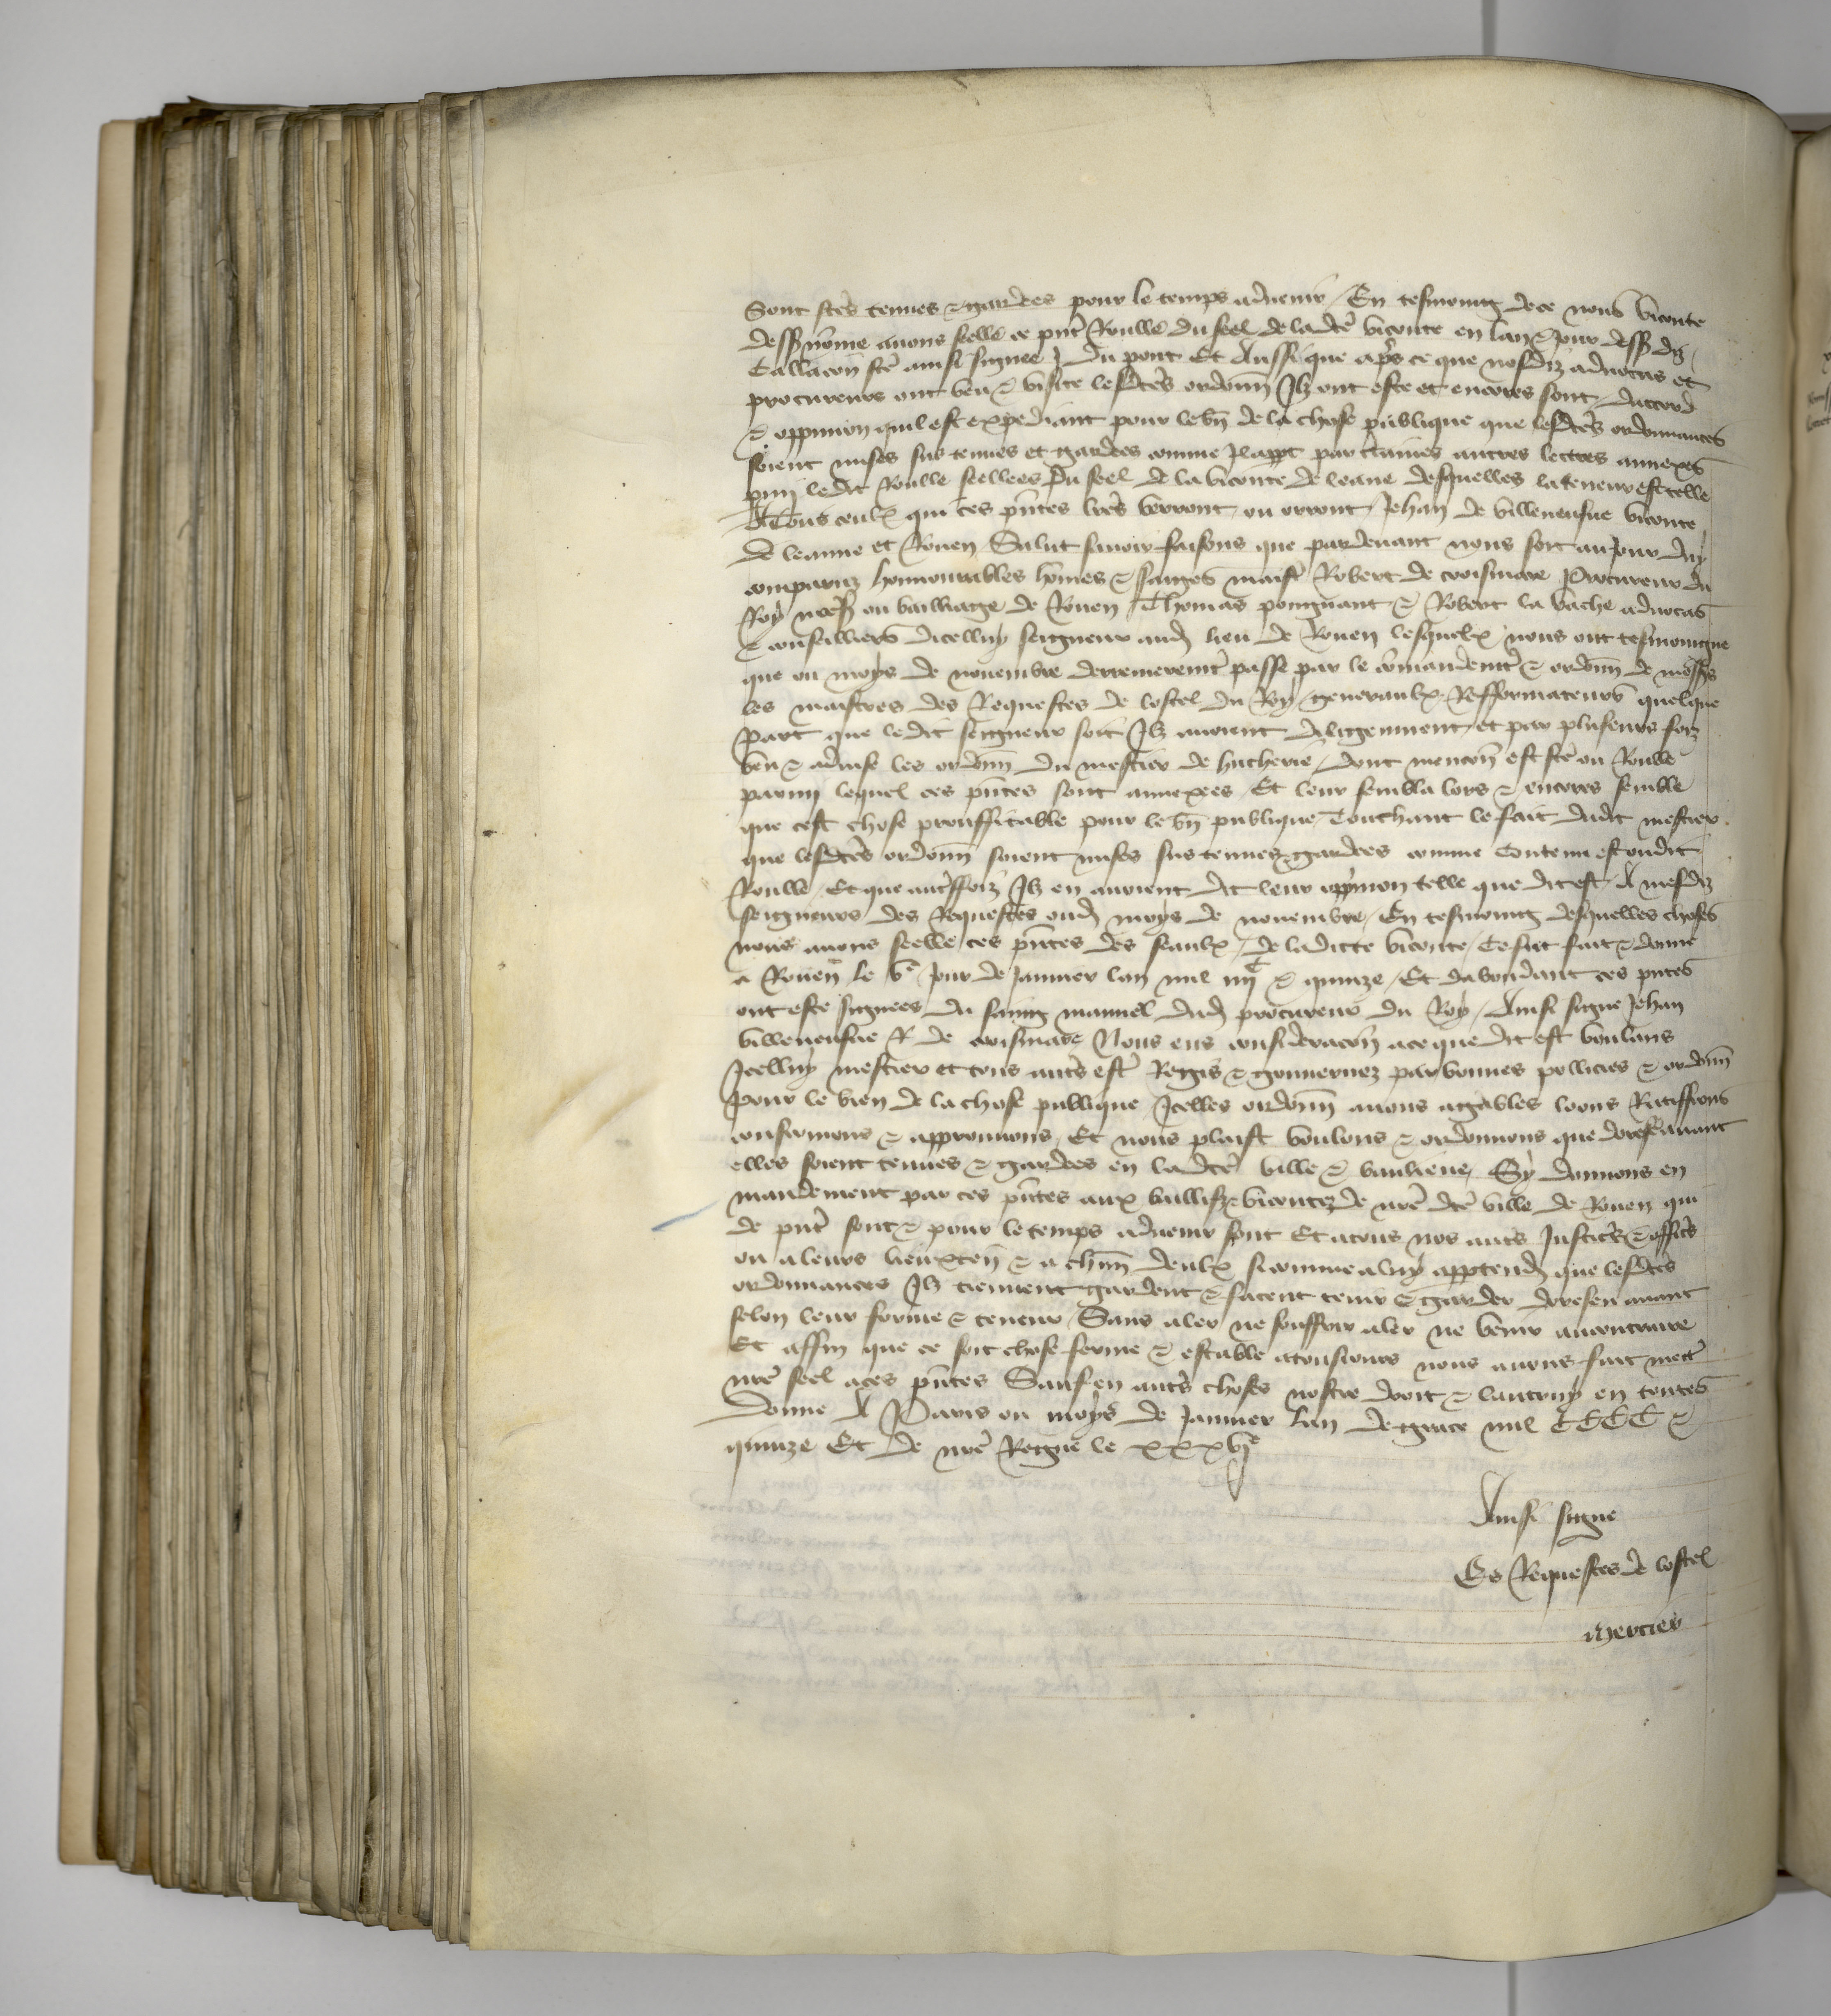 Sont fctes tenues et gardees pour le temps advenir / En tesmoing de ce nous viconte
dessz nomme avons seelle ce pnt Roulle du seel de ladte viconte en lan et jour dessz diz /
Collacon fte ainsi signee J du pont Et Aussi que apres ce que nosdiz advocas et
procureurs ont veu et visite lesdtes ordonn Ilz ont este et encores sont daccord
et oppinion quil est expediant pour le bn de la chose publique que lesdtes ordonnances
soient mises sus tenues et gardees comme Il appt par claines autres lectres annexes
pmy ledit Roulle seellees du seel de la viconte de leaue desquelles la teneur est telle
A Tous ceulx qui ces pntes lres verront ou orront Jehan de villeneufue viconte
de leaue et Rouen Salut savoir faisons que pardevant nous sont aujour duy
comparuz honnourables homes et saiges maistre Robert de croismare Procureur du
Roy nresr ou bailliage de Rouen Thomas poingnant et Robert la vache advocas
et conseilliers dicelluy seigneur aud lieu de Rouen lesquelx nous ont tesmoingne
que ou moys de novembre derrenierement passe par le comandemt et ordonn de messrs
les maistres des Requestes de lostel du Roy generaulx Refformateurs quelque
Part que ledit seigneur soit Ilz avoient diligemment et par plusieurs foiz
veu et advise les ordonn du mestier de hucherie dont mencon est fte ou Roulle
parmy lequel ces pntes sont annexees Et leur sembla lors et encores semble
que cest chose prouffitable pour le bn publique Touchant le fait dudit mestier
que lesdtes ordonn soient mises sus tenues et gardees comme Contenu est oudit
Roulle / Et que autsffoiz Ilz en avoient dit leur oppinion telle que dit est A mesdiz
seigneurs des Requestes oud moys de novembre / En tesmoing desquelles choses
nous avons seelle ces pntes des seaulx de ladicte viconte / Ce fut fait et donne
a Rouen le ve jour de Janvier lan mil iiijC et quinze / Et dabondant ces pntes
ont este signees du saing manuel dud procureur du Roy / Ainsi signe Jehan
villeneufue R de croismare Nous eus consideracon a ce que dit est voulans
Icelluy mestier et tous auts estre Regis et gouvernez par bonnes pollicies et ordonn
Pour le bien de la chose publique Icelles ordonn avons agables loons Ratiffions
confermons et approuvons / Et nous plaist voulons et ordonnons que doresenavant
elles soient tenues et gardees en ladte ville et banlieue / Sy donnons en
mandement par ces pntes aux baillifz et vicontez de nre dte ville de Rouen qui
de pnt sont et pour le temps advenir sont Et a tous nos auts Justicrs et officrs
ou a leurs lieuxten et a chun deulx si comme a luy apptend que lesdtes
ordonnances Ilz tiennent gardent et facent tenir et garder doresen avant
selon leur forme et teneur / Sans aler ne souffrir aler ne venir au contraire
Et affin que ce soit chose ferme et estable a tousjours nous avons fait mectre
nre seel a ces pntes Sauf en auts choses nostre droit et lautruy en toutes
Donne A Paris ou moys de Janvier Lan de grace mil CCCC et
quinze Et de nre Regne le xxxvje
Ainsi signe
Es Requestes de lostel
Mercier